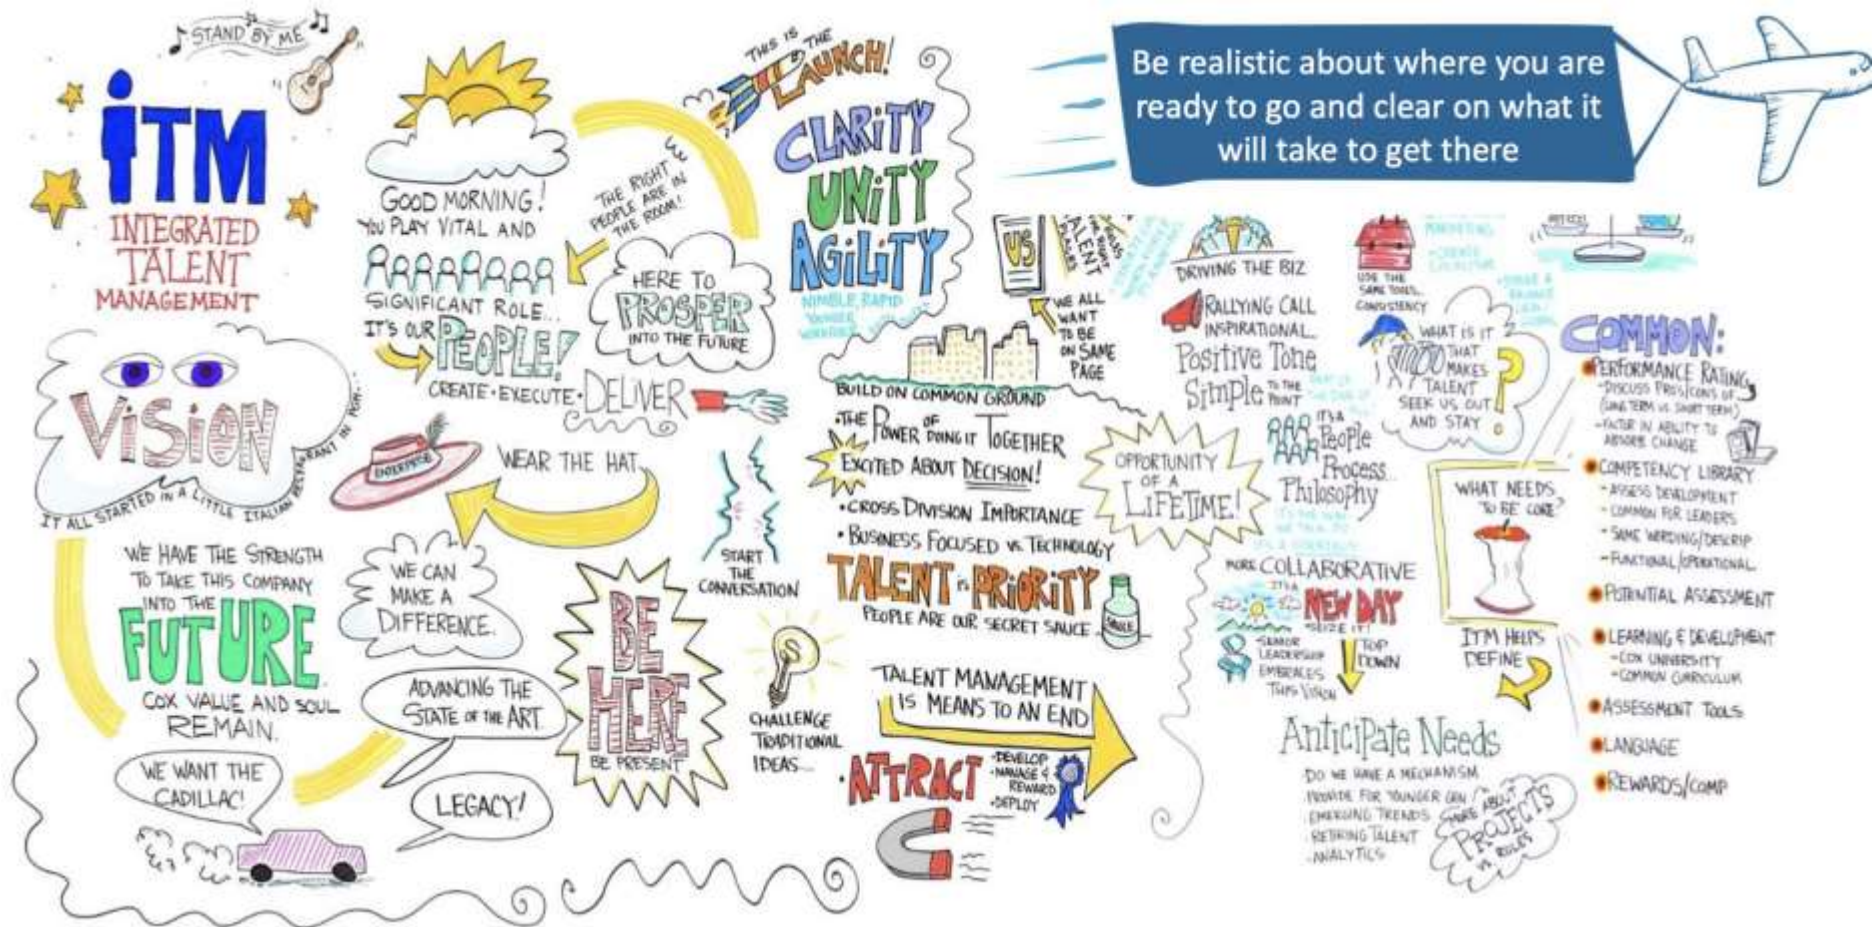 STAND BY ME
iTM
INTEGRATED
TALENT
MANAGEMENT
ViSiON
IT ALL STARTED IN A LITTLE ITALIAN RESTAURANT IN
WE HAVE THE STRENGTH
TO TAKE THIS COMPANY
INTO THE
FUTURE
COX VALUE AND SOUL
REMAIN.
WE WANT THE
CADILLAC!
GOOD MORNING!
YOU PLAY VITAL AND
SIGNIFICANT ROLE...
IT'S OUR
PEOPLE!
CREATE • EXECUTE • DELIVER
THE RIGHT
PEOPLE ARE IN
THE ROOM!
HERE TO
PROSPER
INTO THE FUTURE
ENTERPRISE
WEAR THE HAT
WE CAN
MAKE A
DIFFERENCE.
ADVANCING THE
STATE OF THE ART
LEGACY!
BE
HERE
BE PRESENT
START
THE
CONVERSATION
THIS IS THE
LAUNCH!
CLARiTY
UNiTY
AGiLiTY
NIMBLE, RAPID
BUILD ON COMMON GROUND
• THE POWER OF DOING IT TOGETHER
EXCITED ABOUT DECISION!
• CROSS DIVISION IMPORTANCE
• BUSINESS FOCUSED vs. TECHNOLOGY
TALENT is PRiORiTY
PEOPLE ARE OUR SECRET SAUCE
SAUCE
CHALLENGE
TRADITIONAL
IDEAS...
TALENT MANAGEMENT
IS MEANS TO AN END
• ATTRACT
• DEVELOP
• MANAGE &
REWARD
• DEPLOY
Be realistic about where you are
ready to go and clear on what it
will take to get there
US
TALENT
WE ALL
WANT
TO BE
ON SAME
PAGE
OPPORTUNITY
OF A
LIFETIME!
DRIVING THE BIZ
RALLYING CALL
INSPIRATIONAL
Positive Tone
Simple TO THE POINT
IT'S A
People
Process...
Philosophy
MORE COLLABORATIVE
IT'S A
NEW DAY
SEIZE IT!
SENIOR
LEADERSHIP
EMBRACES
THIS VISION
TOP
DOWN
Anticipate Needs
• DO WE HAVE A MECHANISM
• PROVIDE FOR YOUNGER GEN
• EMERGING TRENDS
• RETIRING TALENT
• ANALYTICS
MORE ABOUT
PROJECTS
vs ROLES
USE THE
SAME TOOLS...
CONSISTENCY
WHAT IS IT
THAT
MAKES
TALENT
SEEK US OUT
AND STAY
?
WHAT NEEDS
TO BE CORE?
ITM HELPS
DEFINE
COMMON:
PERFORMANCE RATING
- DISCUSS PROS/CONS OF
(LONG TERM vs. SHORT TERM)
- FACTOR IN ABILITY TO
ABSORB CHANGE
COMPETENCY LIBRARY
- ASSESS DEVELOPMENT
- COMMON FOR LEADERS
- SAME WORDING/DESCRIP
- FUNCTIONAL/OPERATIONAL
POTENTIAL ASSESSMENT
LEARNING & DEVELOPMENT
- COX UNIVERSITY
- COMMON CURRICULUM
ASSESSMENT TOOLS
LANGUAGE
REWARDS/COMP